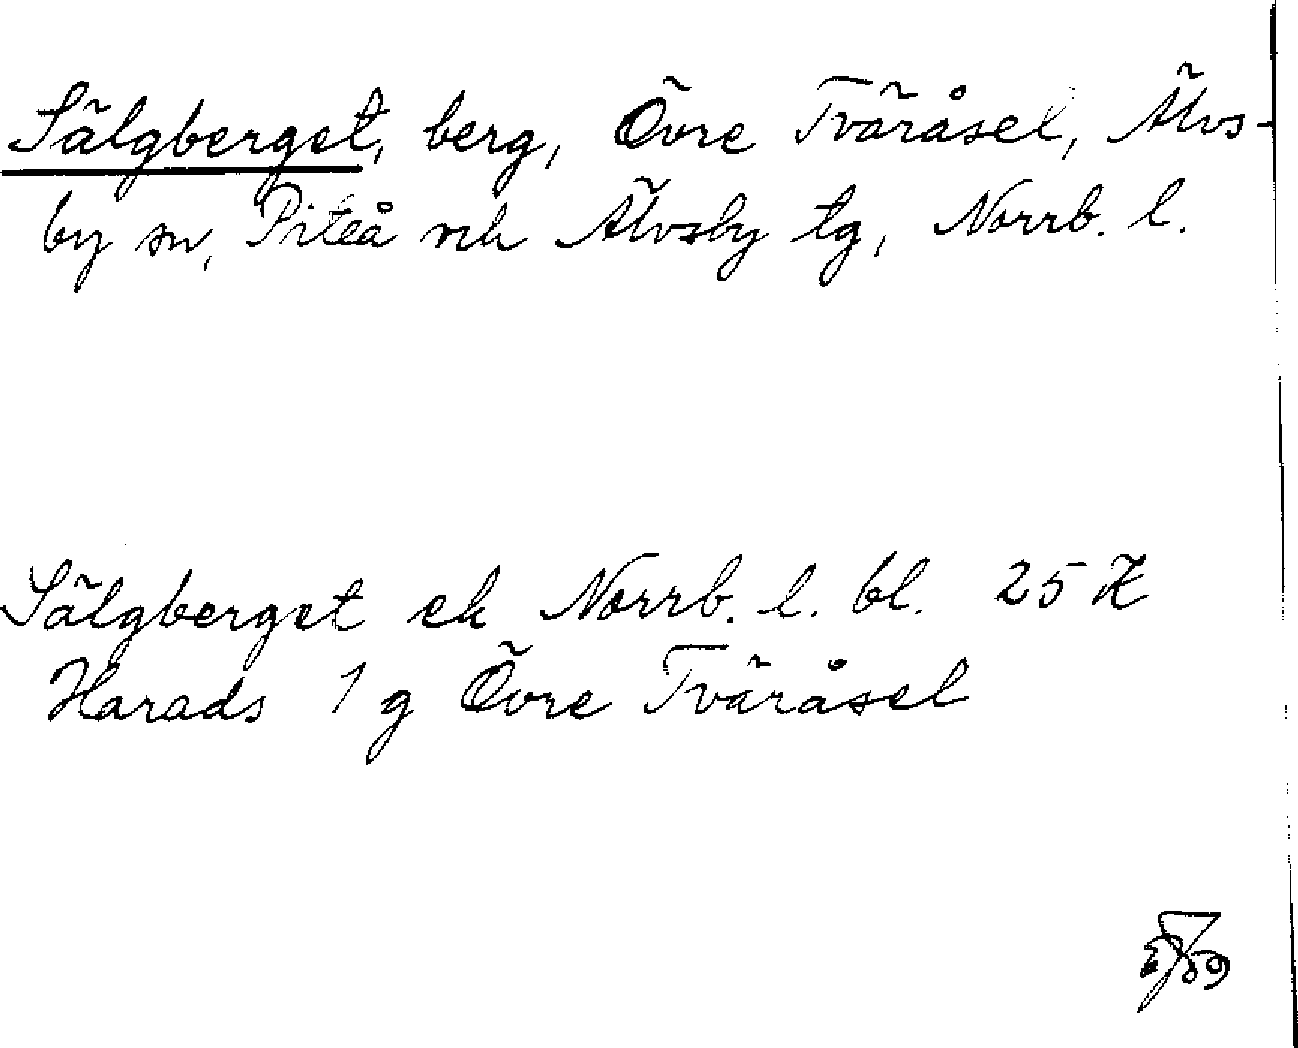 Sälgberget, berg, Övre Tväråsel, Älvs-
by sn, Piteå och Älvsby tg, Norrb. l.
Sälgberget ek Norrb. l. bl. 25 K
Harads 1 g Övre Tväråsel